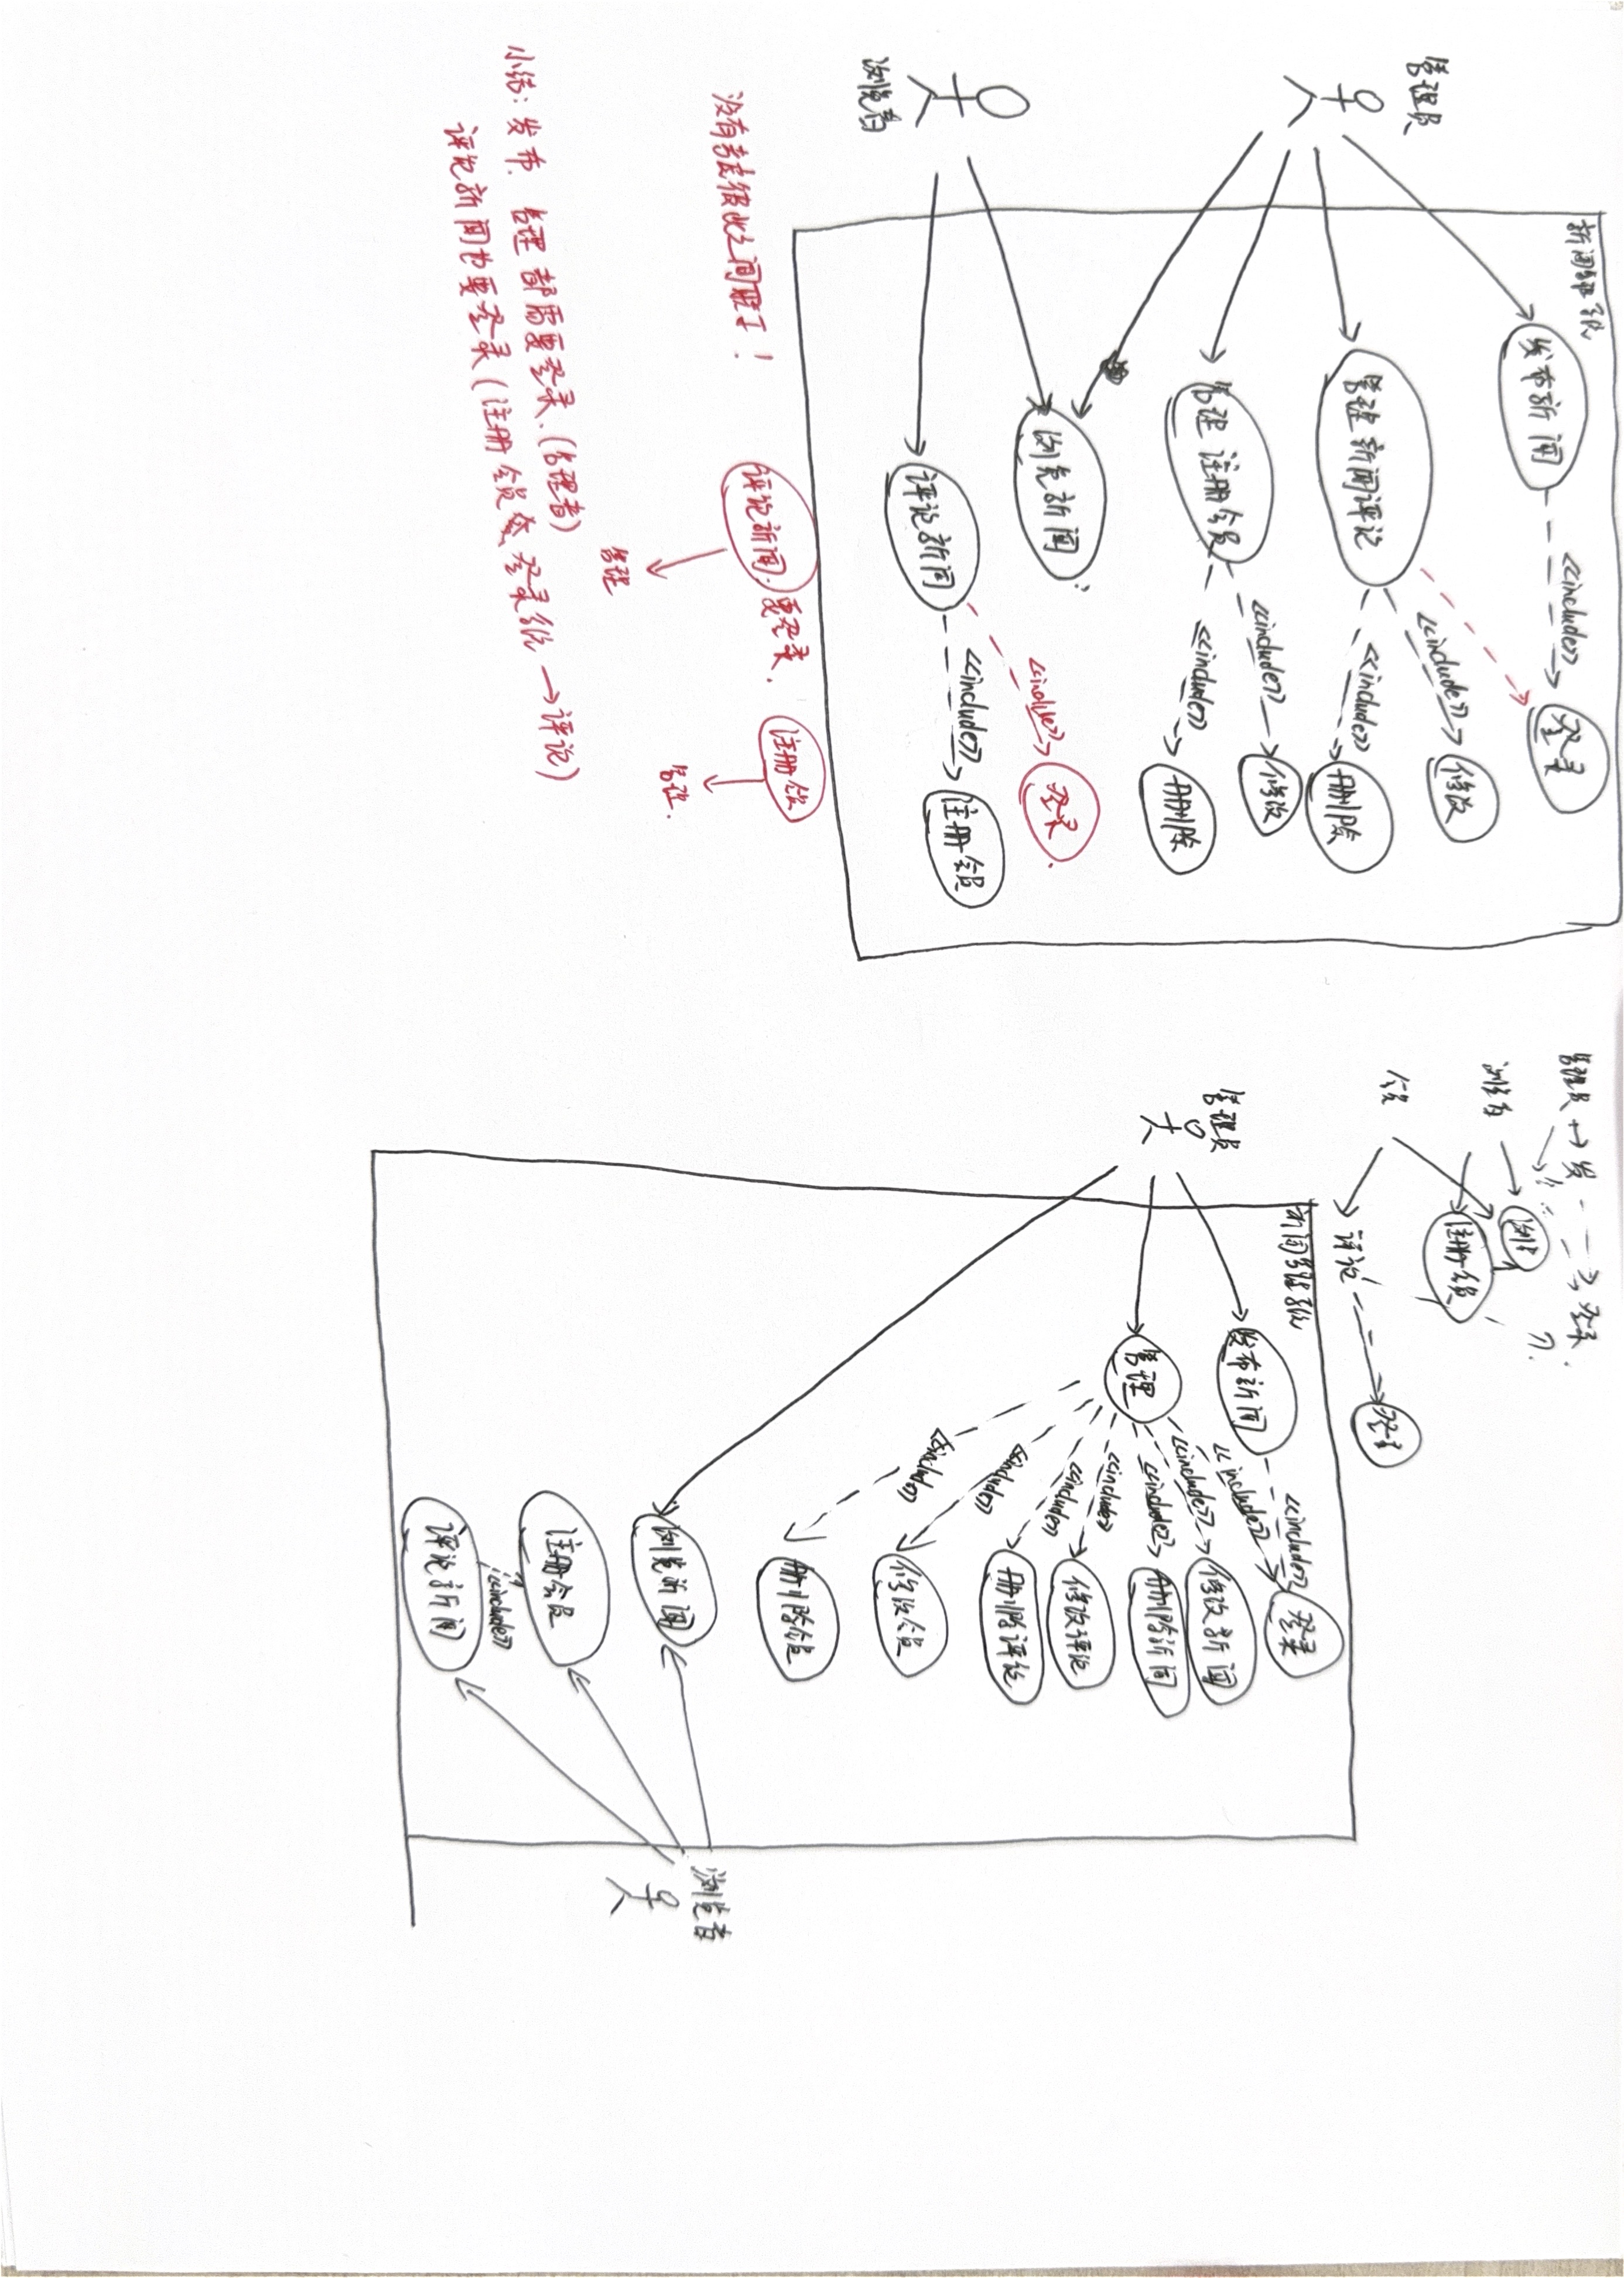 管理员
浏览者
新闻管理系统
发布新闻
<<include>>
登录
管理新闻评论
<<include>>
修改
<<include>>
删除
管理注册会员
<<include>>
修改
<<include>>
删除
浏览新闻
评论新闻
<<include>>
登录
<<include>>
注册会员
评论新闻.要登录.
管理
注册
管理.
小结:发布.管理都需要登录.(管理者)
评论新闻也要登录(注册会员 登录系统→评论)
管理员
发
登录
浏览者
浏览
注册会员
会员
评论
登录
管理员
新闻管理系统
发布新闻
<<include>>
登录
管理
<<include>>
<<include>>
修改新闻
<<include>>
删除新闻
<<include>>
修改评论
<<include>>
删除评论
<<include>>
修改会员
<<include>>
删除会员
浏览新闻
注册会员
<<include>>
评论新闻
浏览者